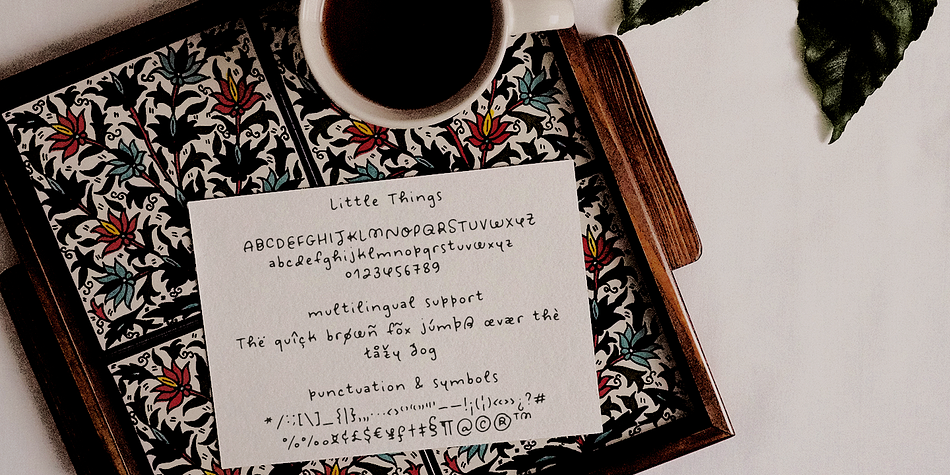 Little Things
ABCDEFGHIJKLMNOPQRSTUVWXYZ
abcdefghijklmnopqrstuvwxyz
0123456789
multilingual support
Thë quîçk brøwñ fõx júmþ@ œvær thè
tåžy dog
punctuation & symbols